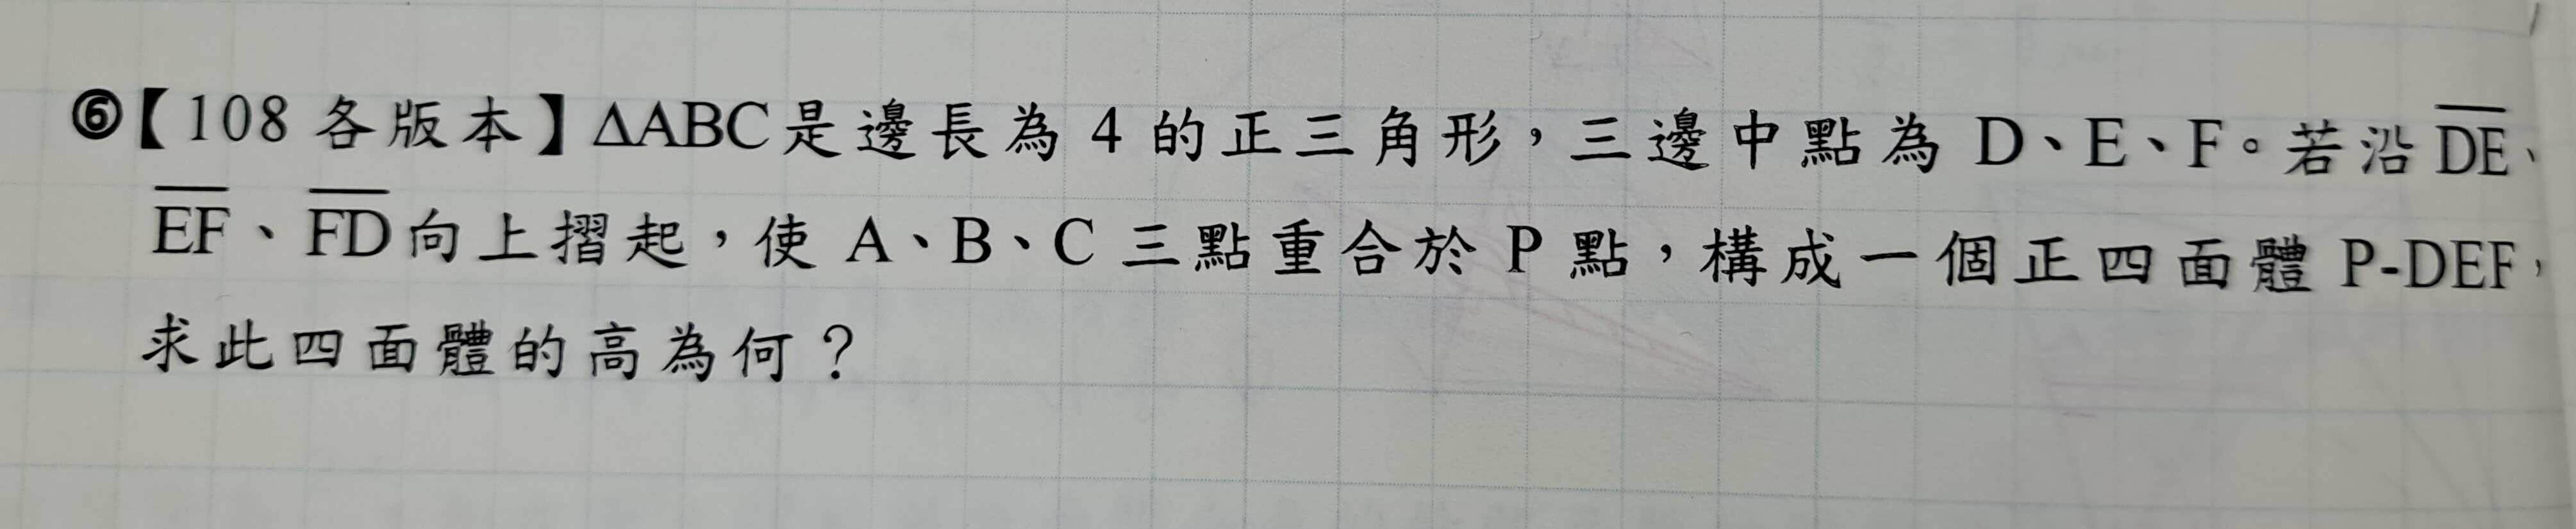 ❻【108 各版本】ΔABC是邊長為 4 的正三角形，三邊中點為 D、E、F。若沿 D̅E̅、
E̅F̅、F̅D̅向上摺起，使 A、B、C 三點重合於 P 點，構成一個正四面體 P-DEF，
求此四面體的高為何？